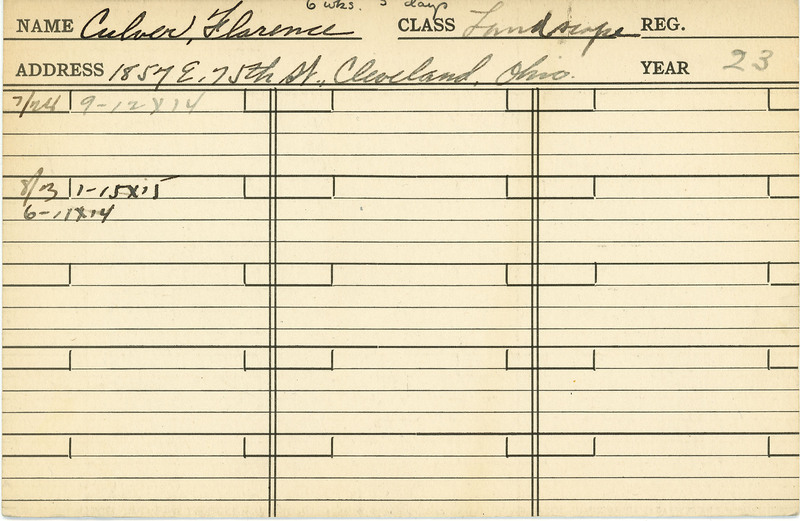 6 wks. 5 days
NAME Culver, Florence CLASS Landscape REG.
ADDRESS 1857 E. 75th St., Cleveland, Ohio. YEAR 23
7/24 9-12X14
8/3 1-15X15
6-11X14